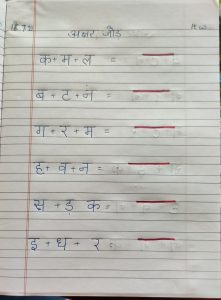 अक्षर जोड़ H.W
क + म + ल =
ब + ट + न =
ग + र + म =
ह + व + न =
स + ड़ + क =
इ + ध + र =